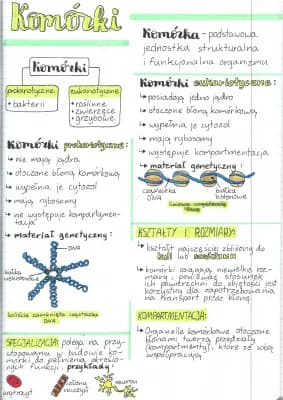 Komórki
Komórki
prokariotyczne:
• bakterii
eukariotyczne:
• roślinne
• zwierzęce
• grzybowe
Komórki prokariotyczne:
↳ nie mają jądra
↳ otoczone błoną komórkową
↳ wypełnia je cytozol
↳ mają rybosomy
↳ nie występuje kompartymen-
tacja
↳ materiał genetyczny:
DNA
białka
kolista zamknięta cząsteczka
DNA
SPECJALIZACJA: polega na przy-
stosowaniu w budowie ko-
mórki do pełnienia określo-
nych funkcji. przykłady:
erytrocyt
neuron
Komórka - podstawowa
jednostka strukturalna
i funkcjonalna organizmu
Komórki eukariotyczne:
↳ posiadają jedno jądro
↳ otoczone błoną komórkową
↳ wypełnia je cytozol
↳ mają rybosomy
↳ występuje kompartmentacja
↳ materiał genetyczny:
cząsteczka
DNA
białka
histonowe
KSZTAŁTY I ROZMIARY:
↳ kształt najczęściej zbliżony do
kuli lub
↳ komórki osiągają niewielkie roz-
miary, ponieważ stosunek
ich powierzchni do objętości jest
korzystny dla zapotrzebowania
na transport przez błonę.
KOMPARTMENTACJA:
↳ Organelle komórkowe otoczone
błonami tworzą przedziały
(kompartmenty), które ze sobą
współpracują